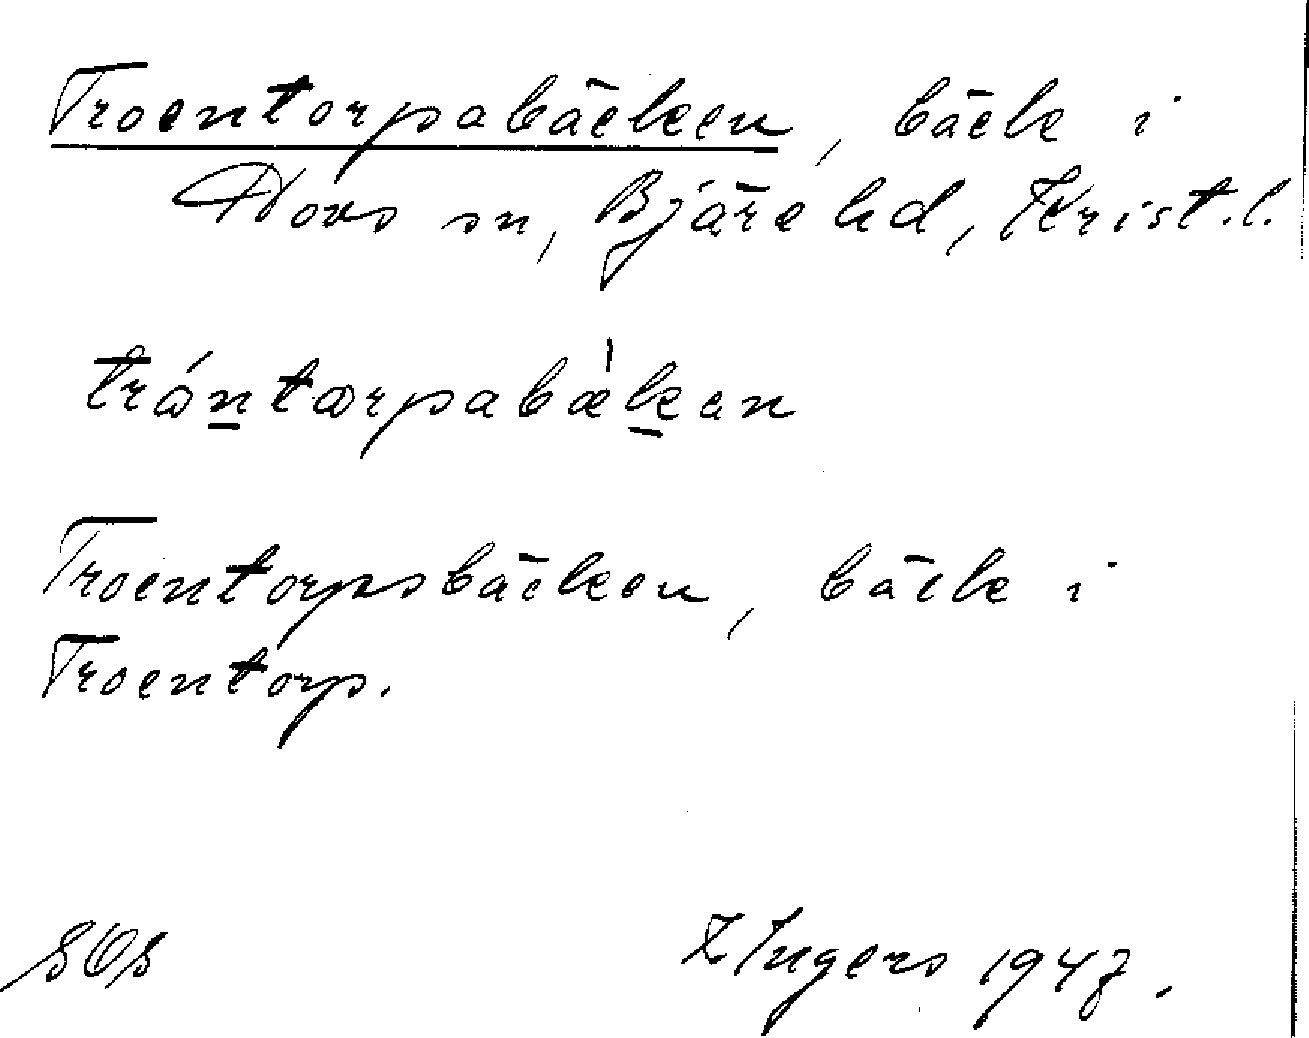 Troentorpabäcken, bäck i
Hovs sn, Bjäre hd, Krist. l.
tråntorpabækan
Troentorpsbäcken, bäck i
Troentorp.
SOS
Ingers 1947.